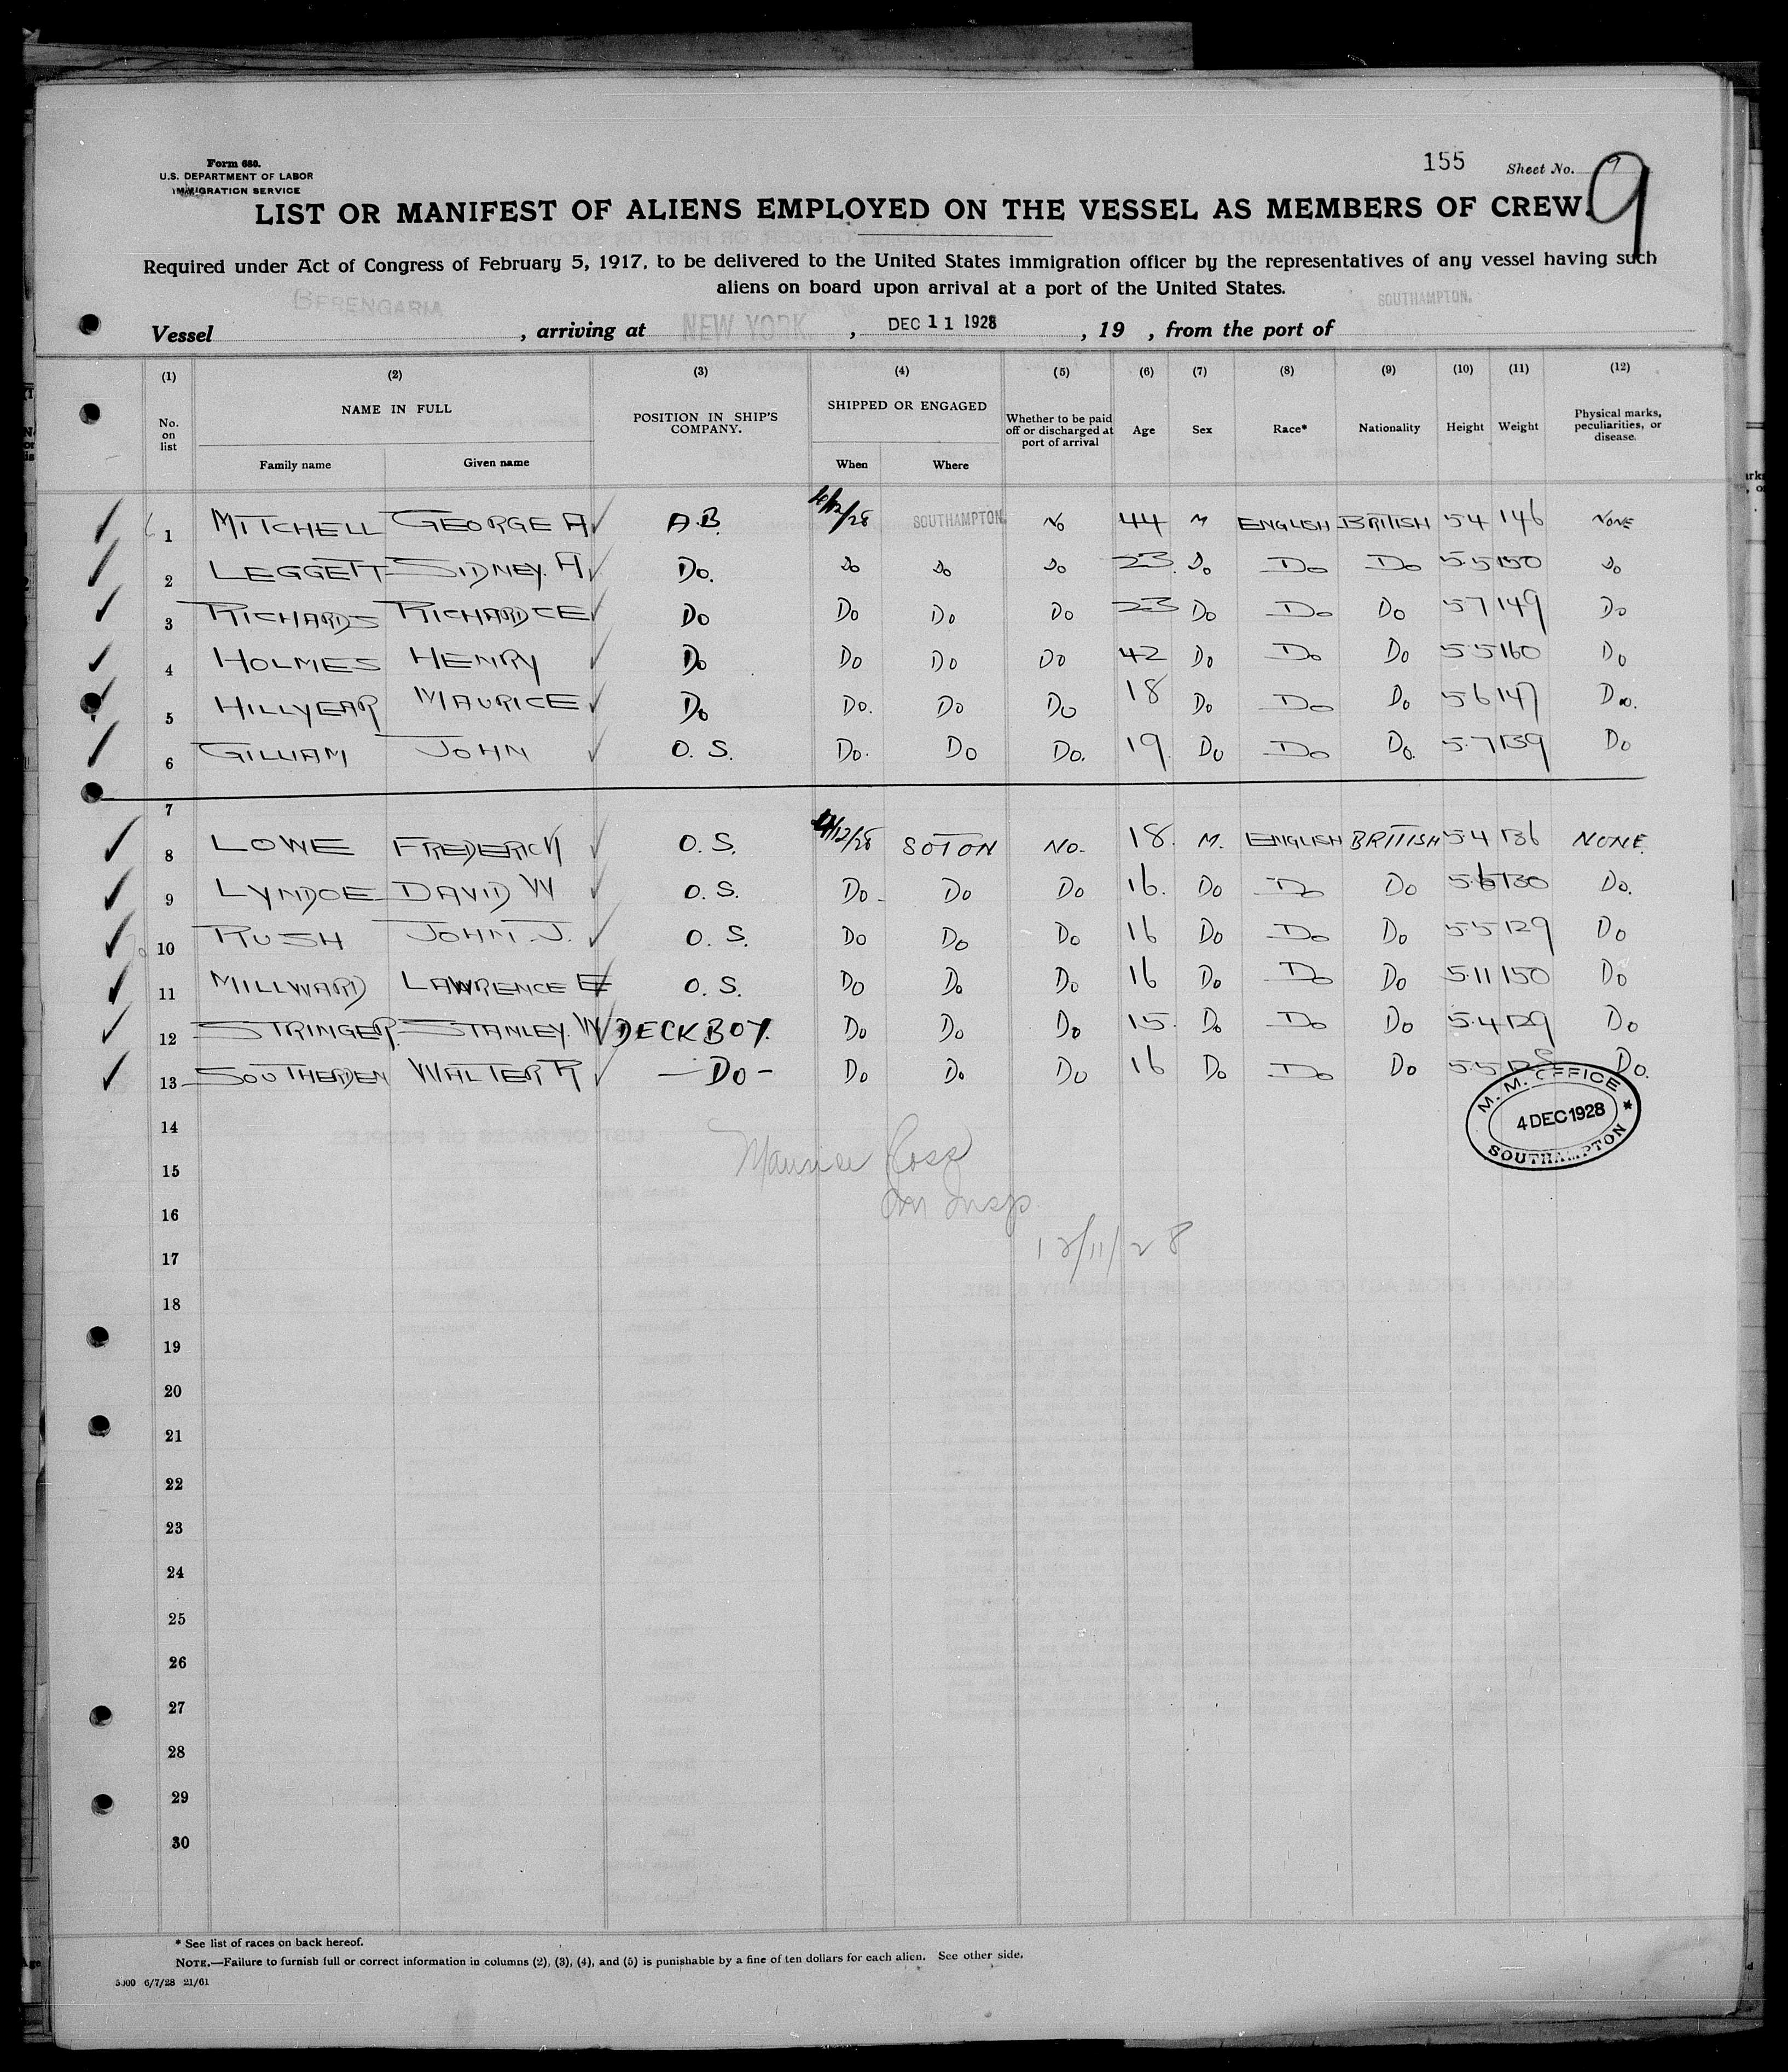 Form 680.
U.S. DEPARTMENT OF LABOR
IMMIGRATION SERVICE
155 Sheet No. 9
9
LIST OR MANIFEST OF ALIENS EMPLOYED ON THE VESSEL AS MEMBERS OF CREW.
Required under Act of Congress of February 5, 1917, to be delivered to the United States immigration officer by the representatives of any vessel having such
aliens on board upon arrival at a port of the United States.
Vessel BERENGARIA, arriving at NEW YORK, DEC 11 1928, 19 , from the port of SOUTHAMPTON.
(1) (2) (3) (4) (5) (6) (7) (8) (9) (10) (11) (12)
No. on list NAME IN FULL POSITION IN SHIP'S COMPANY. SHIPPED OR ENGAGED Whether to be paid off or discharged at port of arrival Age Sex Race* Nationality Height Weight Physical marks, peculiarities, or disease.
Family name Given name When Where
1 MITCHELL GEORGE A A.B. 4/12/28 SOUTHAMPTON. No 44 M ENGLISH BRITISH 5 4 146 NONE
2 LEGGETT SIDNEY. A Do. Do Do Do 23. Do Do Do 5.5 150 Do
3 RICHARDS RICHARD C E Do Do Do Do 23 Do Do Do 5 7 149 Do
4 HOLMES HENRY Do Do Do Do 42 Do Do Do 5.5 160 Do
5 HILLYEAR MAURICE Do Do. Do Do 18 Do Do Do 5 6 147 Do.
6 GILLIAM JOHN O. S. Do. Do Do. 19. Do Do Do. 5.7 139 Do
7
8 LOWE FREDERICK O. S. 4/12/28 SOTON No. 18. M. ENGLISH BRITISH 5.4 136 NONE.
9 LYNDOE DAVID W O. S. Do. Do Do 16. Do Do Do 5.6 130 Do.
10 RUSH JOHN. J. O. S. Do Do Do 16 Do Do Do 5.5 129 Do
11 MILLWARD LAWRENCE E O. S. Do Do Do 16 Do Do Do 5.11 150 Do
12 STRINGER. STANLEY. W DECK BOY. Do Do Do 15. Do Do Do 5.4 129 Do
13 SOUTHERDEN WALTER R — Do - Do Do Do 16 Do Do Do 5.5 128 Do.
M. M. OFFICE
4 DEC 1928
SOUTHAMPTON
14
Maurice Ross
15
Imm Insp
16
12/11/28
17
18
19
20
21
22
23
24
25
26
27
28
29
30
* See list of races on back hereof.
NOTE.—Failure to furnish full or correct information in columns (2), (3), (4), and (5) is punishable by a fine of ten dollars for each alien. See other side.
5000 6/7/28 21/61